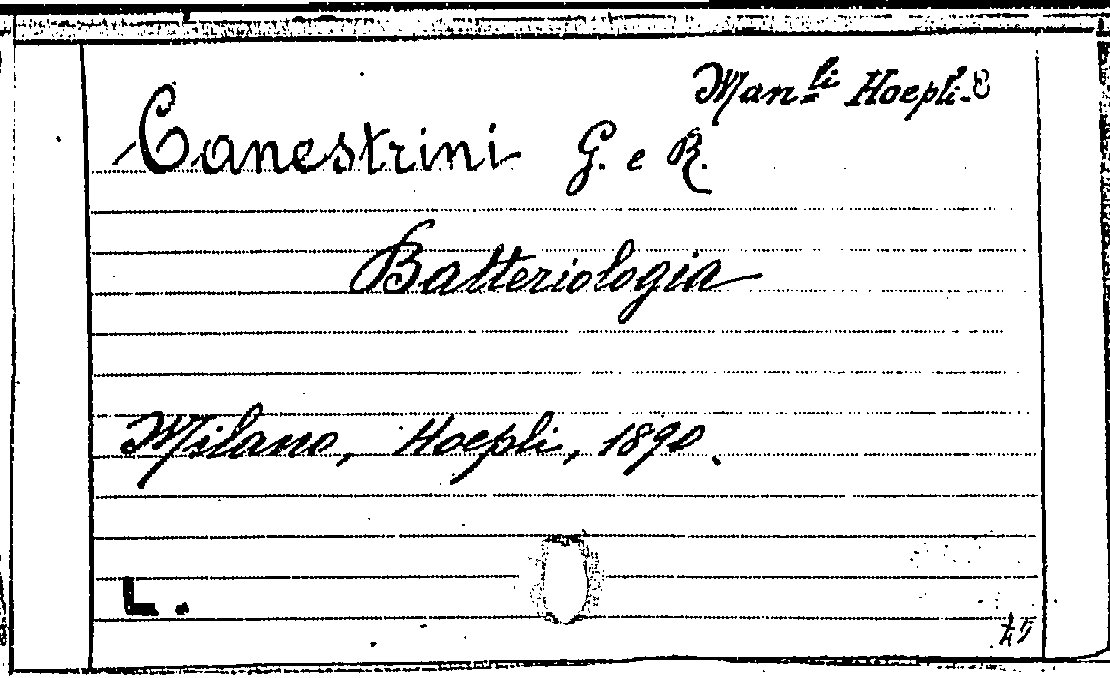 Man.li Hoepli-C
Canestrini G. e R.
Batteriologia
Milano, Hoepli, 1890.
L.